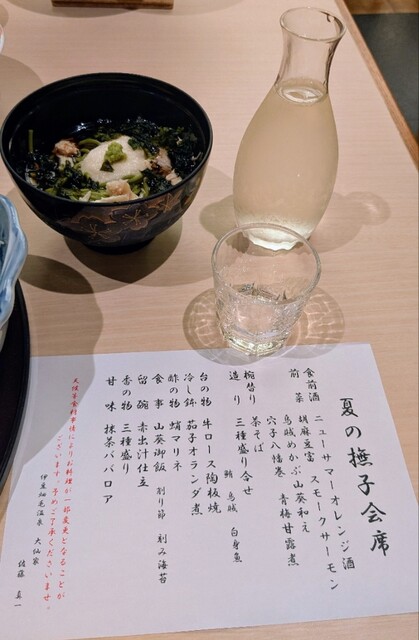 夏の撫子会席
食前酒 ニューサマーオレンジ酒
前 菜 胡麻豆富 スモークサーモン
烏賊めかぶ山葵和え
穴子八幡巻 青梅甘露煮
椀替り 茶そば
造 り 三種盛り合せ
鮪 烏賊 白身魚
台の物 牛ロース陶板焼
冷し鉢 茄子オランダ煮
酢の物 蛸マリネ
食 事 山葵御飯 削り節 刻み海苔
留 椀 赤出汁仕立
香の物 三種盛り
甘 味 抹茶ババロア
天候等食材事情によりお料理が一部変更となることが
ございます。予めご了承くださいませ。
伊豆畑毛温泉 大仙家
佐藤 真一